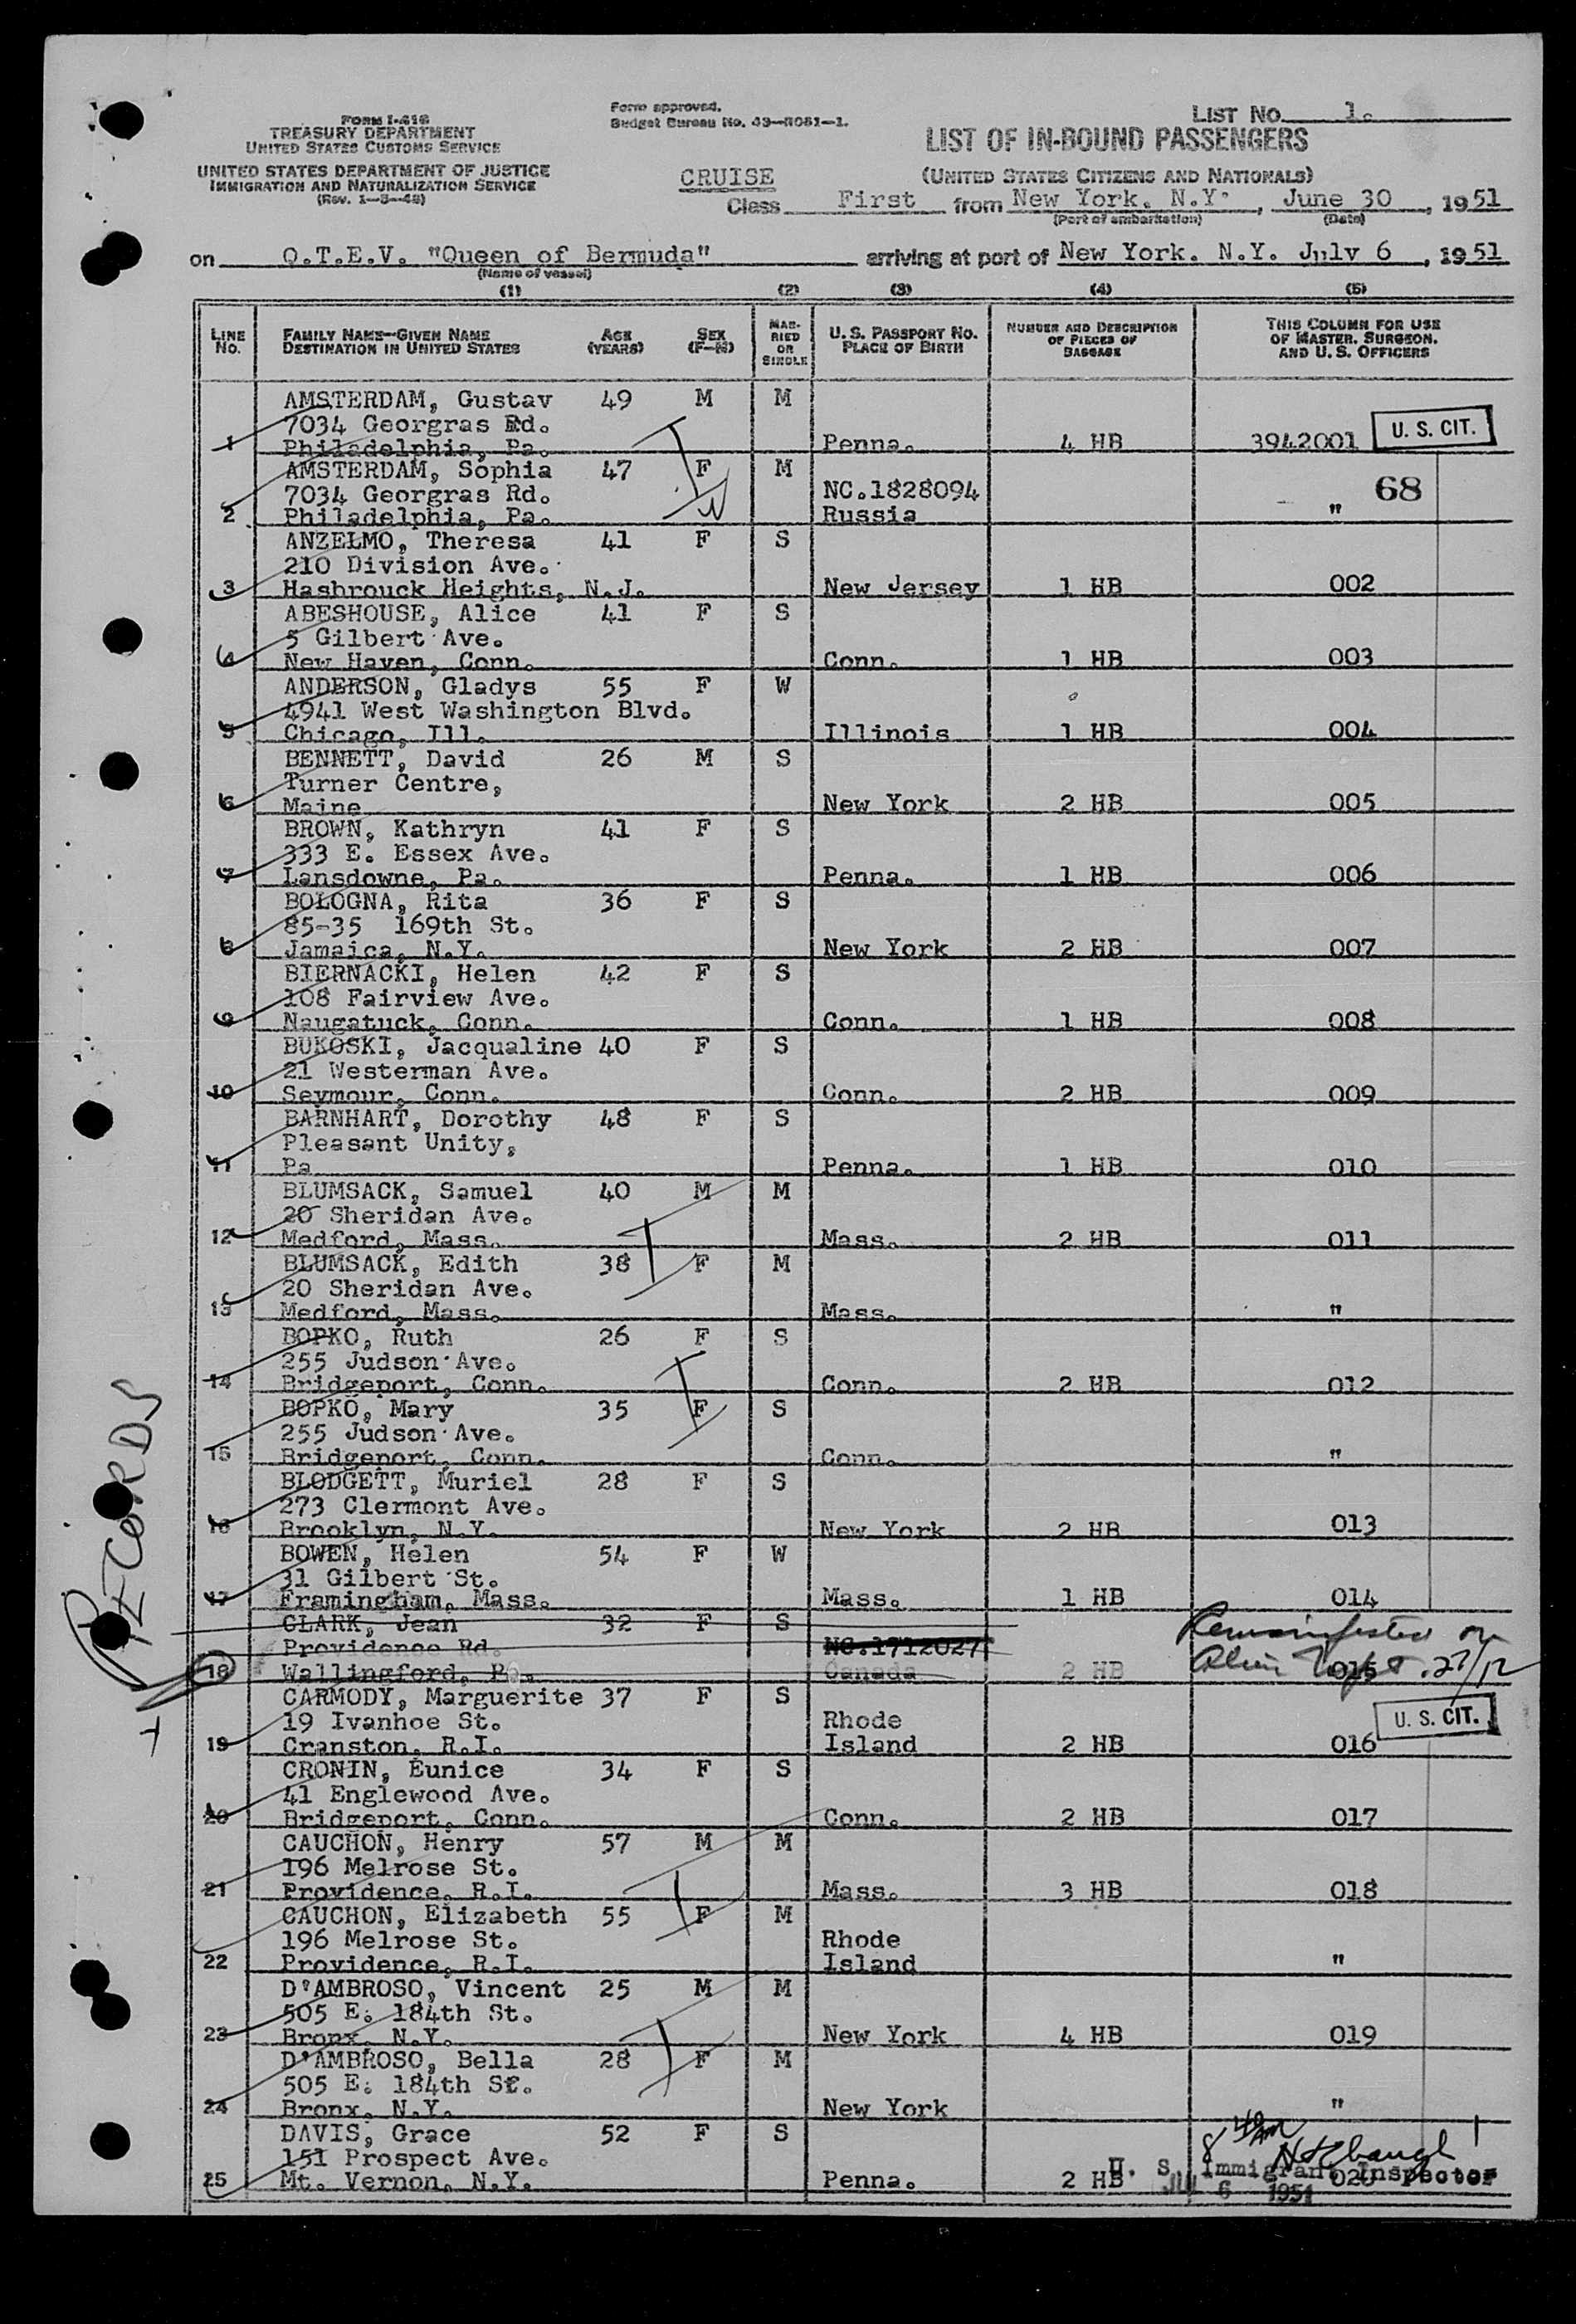 FORM I-416
TREASURY DEPARTMENT
UNITED STATES CUSTOMS SERVICE
UNITED STATES DEPARTMENT OF JUSTICE
IMMIGRATION AND NATURALIZATION SERVICE
(Rev. 1-3-48)
Form approved.
Budget Bureau No. 43-R081-1.
LIST NO. 1.
LIST OF IN-BOUND PASSENGERS
(UNITED STATES CITIZENS AND NATIONALS)
CRUISE
Class First from New York, N.Y., June 30, 1951
(Port of embarkation) (Date)
on Q.T.E.V. "Queen of Bermuda" arriving at port of New York, N.Y. July 6, 1951
(Name of vessel)
(1) (2) (3) (4) (5)
LINE NO. FAMILY NAME—GIVEN NAME DESTINATION IN UNITED STATES AGE (YEARS) SEX (F-M) MARRIED OR SINGLE U. S. PASSPORT NO. PLACE OF BIRTH NUMBER AND DESCRIPTION OF PIECES OF BAGGAGE THIS COLUMN FOR USE OF MASTER, SURGEON, AND U. S. OFFICERS
AMSTERDAM, Gustav 49 M M
7034 Georgras Rd.
1 Philadelphia, Pa. Penna. 4 HB 3942001 U. S. CIT.
AMSTERDAM, Sophia 47 F M
7034 Georgras Rd. NC.1828094 68
2 Philadelphia, Pa. Russia "
ANZELMO, Theresa 41 F S
210 Division Ave.
3 Hasbrouck Heights, N.J. New Jersey 1 HB 002
ABESHOUSE, Alice 41 F S
5 Gilbert Ave.
4 New Haven, Conn. Conn. 1 HB 003
ANDERSON, Gladys 55 F W
4941 West Washington Blvd.
5 Chicago, Ill. Illinois 1 HB 004
BENNETT, David 26 M S
Turner Centre,
6 Maine New York 2 HB 005
BROWN, Kathryn 41 F S
333 E. Essex Ave.
7 Lansdowne, Pa. Penna. 1 HB 006
BOLOGNA, Rita 36 F S
85-35 169th St.
8 Jamaica, N.Y. New York 2 HB 007
BIERNACKI, Helen 42 F S
108 Fairview Ave.
9 Naugatuck, Conn. Conn. 1 HB 008
BUKOSKI, Jacqualine 40 F S
21 Westerman Ave.
10 Seymour, Conn. Conn. 2 HB 009
BARNHART, Dorothy 48 F S
Pleasant Unity,
11 Pa Penna. 1 HB 010
BLUMSACK, Samuel 40 M M
20 Sheridan Ave.
12 Medford, Mass. Mass. 2 HB 011
BLUMSACK, Edith 38 F M
20 Sheridan Ave.
13 Medford, Mass. Mass. "
BOPKO, Ruth 26 F S
255 Judson Ave.
14 Bridgeport, Conn. Conn. 2 HB 012
BOPKO, Mary 35 F S
255 Judson Ave.
15 Bridgeport, Conn. Conn. "
BLODGETT, Muriel 28 F S
273 Clermont Ave.
16 Brooklyn, N.Y. New York 2 HB 013
BOWEN, Helen 54 F W
31 Gilbert St.
17 Framingham, Mass. Mass. 1 HB 014
CLARK, Jean 32 F S Remanifested on
Providence Rd. NC.1712027
18 Wallingford, Pa. Canada 2 HB 015 Alien
CARMODY, Marguerite 37 F S
19 Ivanhoe St. Rhode U. S. CIT.
19 Cranston, R.I. Island 2 HB 016
CRONIN, Eunice 34 F S
41 Englewood Ave.
20 Bridgeport, Conn. Conn. 2 HB 017
CAUCHON, Henry 57 M M
196 Melrose St.
21 Providence, R.I. Mass. 3 HB 018
CAUCHON, Elizabeth 55 F M
196 Melrose St. Rhode
22 Providence, R.I. Island "
D'AMBROSO, Vincent 25 M M
505 E. 184th St.
23 Bronx, N.Y. New York 4 HB 019
D'AMBROSO, Bella 28 F M
505 E. 184th St.
24 Bronx, N.Y. New York "
DAVIS, Grace 52 F S
151 Prospect Ave.
25 Mt. Vernon, N.Y. Penna. 2 HB 020
U. S. Immigrant Inspector
JUL 6 1951
RECORDS